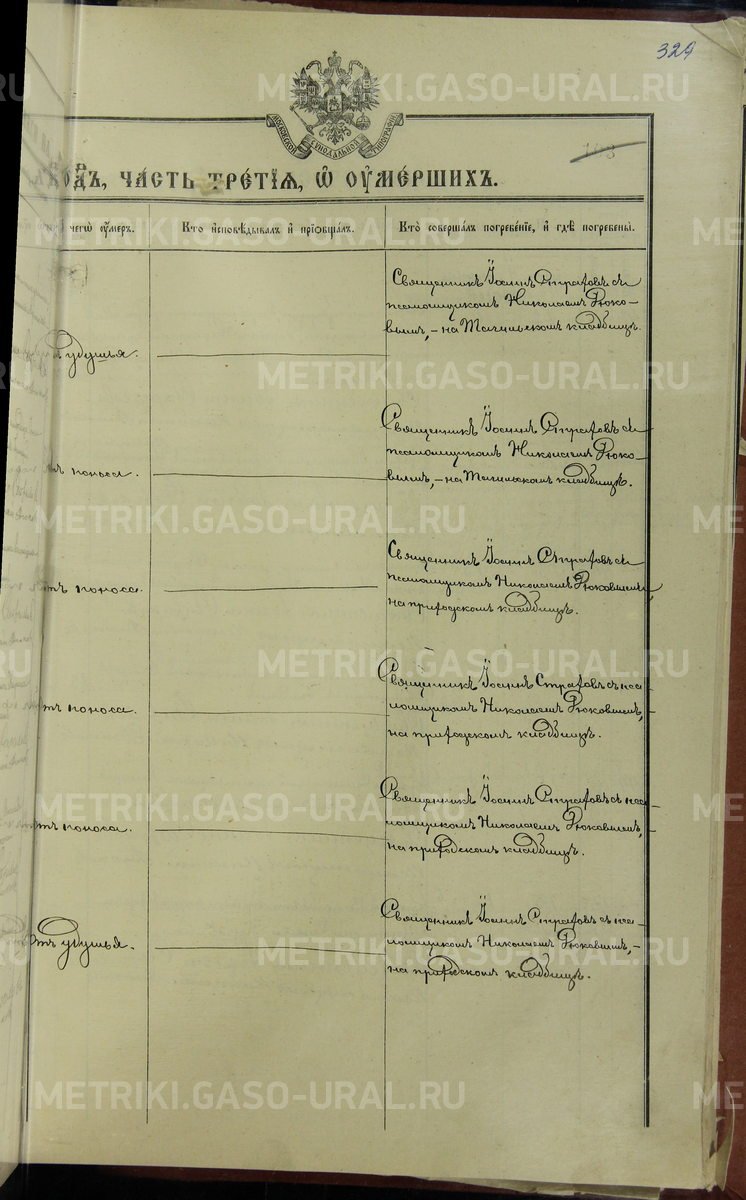 329
МОСКОВСКОЙ СѴНОДАЛЬНОЙ ТИПОГРАФІИ
ЧАСТЬ ТРЕТІѦ, Ѡ ОУМЕРШИХЪ.
чегѡ оумеръ.
Кто исповѣдывалъ и пріобщалъ.
Кто совершалъ погребеніе, и гдѣ погребены.
Священникъ Іоаннъ Стратовъ съ
псаломщикомъ Николаемъ Рюко-
вымъ, – на Тагильскомъ кладбищѣ.
удушья.
Священникъ Іоаннъ Стратовъ съ
псаломщикомъ Николаемъ Рюко-
вымъ, – на Тагильскомъ кладбищѣ.
поноса.
Священникъ Іоаннъ Стратовъ съ
псаломщикомъ Николаемъ Рюковымъ,
на приходскомъ кладбищѣ.
поноса.
Священникъ Іоаннъ Стратовъ съ пса-
ломщикомъ Николаемъ Рюковымъ,
на приходскомъ кладбищѣ.
поноса.
Священникъ Іоаннъ Стратовъ съ пса-
ломщикомъ Николаемъ Рюковымъ,
на приходскомъ кладбищѣ.
поноса.
Священникъ Іоаннъ Стратовъ съ пса-
ломщикомъ Николаемъ Рюковымъ, –
на приходскомъ кладбищѣ.
Отъ удушья.
METRIKI.GASO-URAL.RU